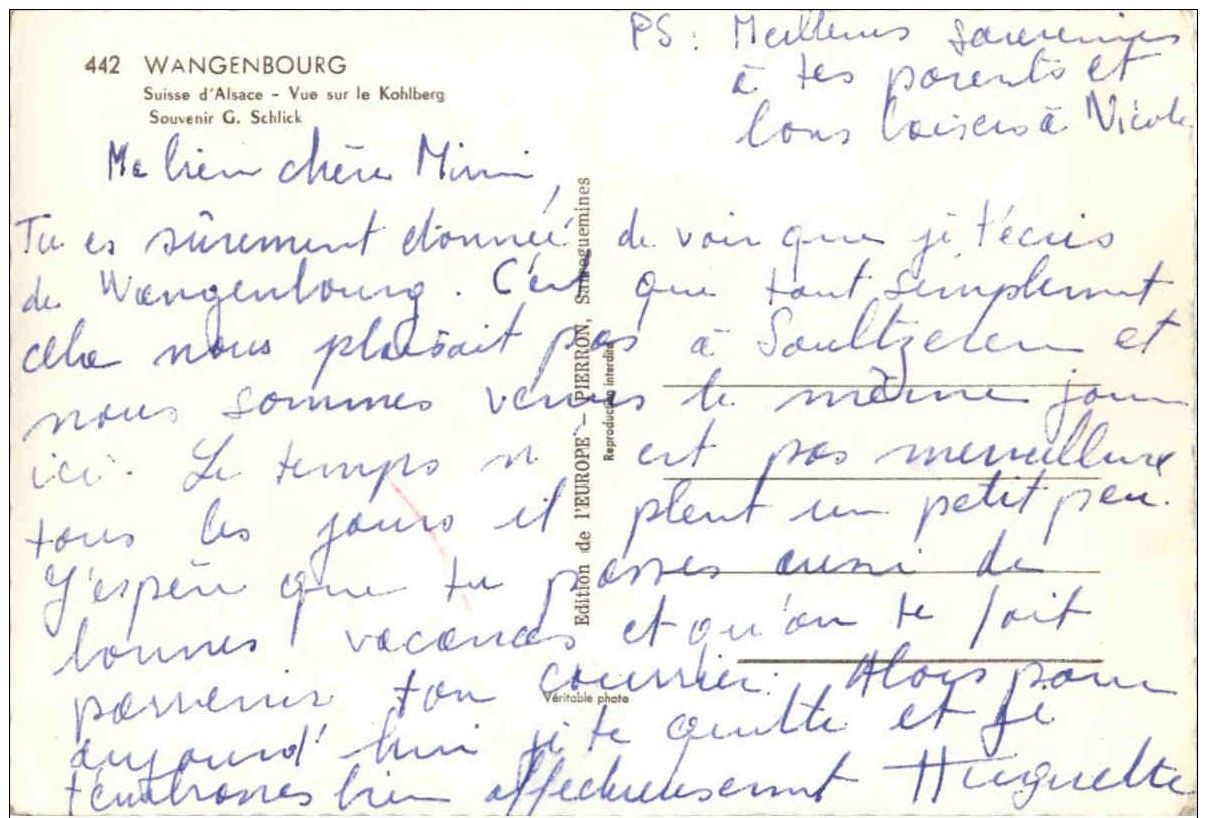 442 WANGENBOURG
Suisse d'Alsace - Vue sur le Kohlberg
Souvenir G. Schlick
PS : Meilleurs souvenirs
à tes parents et
bons baisers à Nicole
Ma bien chère Mimi,
Tu es sûrement étonnée de voir que je t'écris
de Wangenbourg. C'est que tout simplement
cela nous plaisait pas à Soultzeren et
nous sommes venus le même jour
ici. Le temps n'est pas merveilleux
tous les jours il pleut un petit peu.
J'espère que tu passes aussi de
bonnes vacances et qu'on te fait
parvenir ton courrier. Alors pour
aujourd'hui je te quitte et je
t'embrasses bien affectueusement Huguette
Edition de l'EUROPE - PIERRON, Sarreguemines
Reproduction interdite
Véritable photo